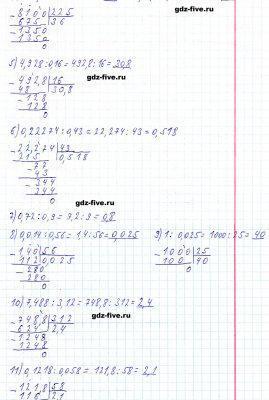 8100|225
675 |36
1350
1350
0
5) 4,928:0,16=492,8:16=30,8
492,8|16
48 |30,8
128
128
0
gdz-five.ru
6) 0,22274:0,43=22,274:43=0,518
22,274|43
215 |0,518
77
43
344
344
0
gdz-five.ru
7) 0,72:0,9=7,2:9=0,8
8) 0,014:0,56=1,4:56=0,025 9) 1:0,025=1000:25=40
140|56 1000|25
112|0,025 100 |40
280 0
280
0
gdz-five.ru
10) 7,488:3,12=748,8:312=2,4
748,8|312
624 |2,4
1248
1248
0
gdz-five.ru
11) 0,1218:0,058=121,8:58=2,1
121,8|58
116 |2,1